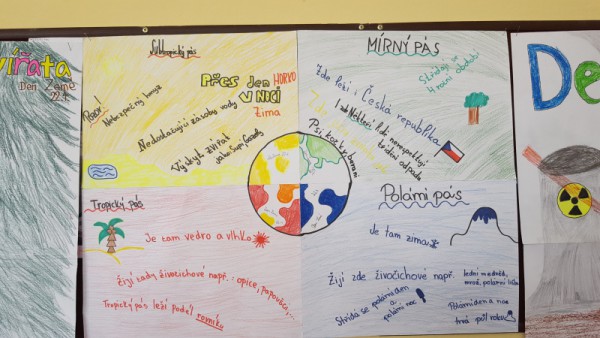 vířata
Den Země
22.4.
Subtropický pás
Pozor!
Nebezpečný hmyz
Přes den HORKO
V NOCI
Zima
Nedostačující zásoby vody
Výskyt zvířat
jako: Supi, Gazely
MÍRNÝ PÁS
Střídají se
4 roční období
Zde leží i Česká republika
lidi nerespektují
třídění odpadu
Psi, kočky,
Tropický pás
Je tam vedro a vlhko
Žijí tady živočichové např.: opice, papoušci,...
Tropický pás leží podél rovníku
Polární pás
Je tam zima
Žijí zde živočichové např. lední medvěd,
mrož, polární liška
Střídá se polární den
a
polární noc
Polární den a noc
trvá půl roku
De